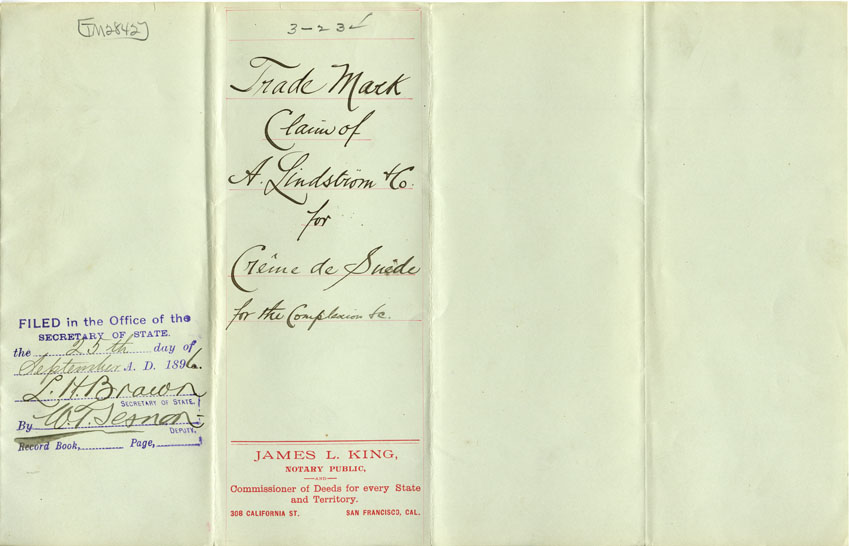 TM2842
3-23
Trade Mark
Claim of
A. Lindström & Co.
for
Crême de Suêde
for the Complexion &c.
FILED in the Office of the
SECRETARY OF STATE.
the 25th day of
September A. D. 1896.
L. H. Brown
SECRETARY OF STATE.
By W. T. Sesnon
DEPUTY.
Record Book, Page,
JAMES L. KING,
NOTARY PUBLIC,
AND
Commissioner of Deeds for every State
and Territory.
308 CALIFORNIA ST. SAN FRANCISCO, CAL.